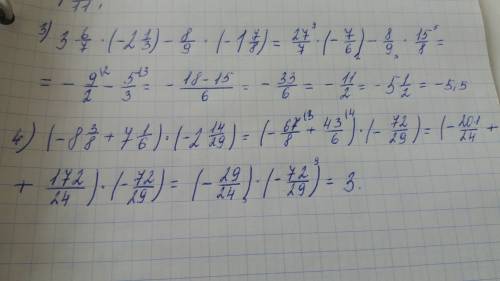 3) 3 6/7 · (-2 1/3) - 8/9 · (-1 7/8) = 27/7 ⁹ · (-7/6 ₂) - 8/9 ₃ · 15/8 ⁵ =
= - 9/2 ¹² - 5/3 ¹³ = - (18-15)/6 = - 33/6 = - 11/2 = -5 1/2 = -5,5
4) (-8 3/8 + 7 1/6) · (-2 14/29) = (- 67/8 ¹³ + 43/6 ¹⁴) · (- 72/29) = (- 201/24 +
+ 172/24) · (- 72/29) = (- 29/24) · (- 72/29 ³) = 3.